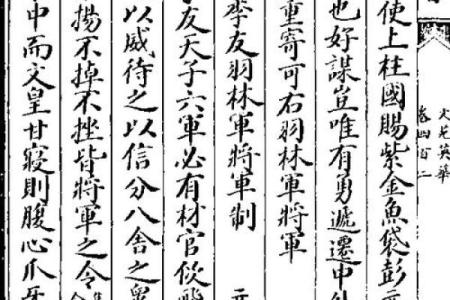 文苑英華
卷四百二
使上柱國賜紫金魚袋彭
也好謀豈唯有勇遞遷中外
重寄可右羽林軍將軍
李友羽林軍將軍制
友天子六軍必有材官佽飛
以威待之以信分八舍之衆
揚不掉不挫皆將軍之令
中而文皇甘寢則腹心爪牙